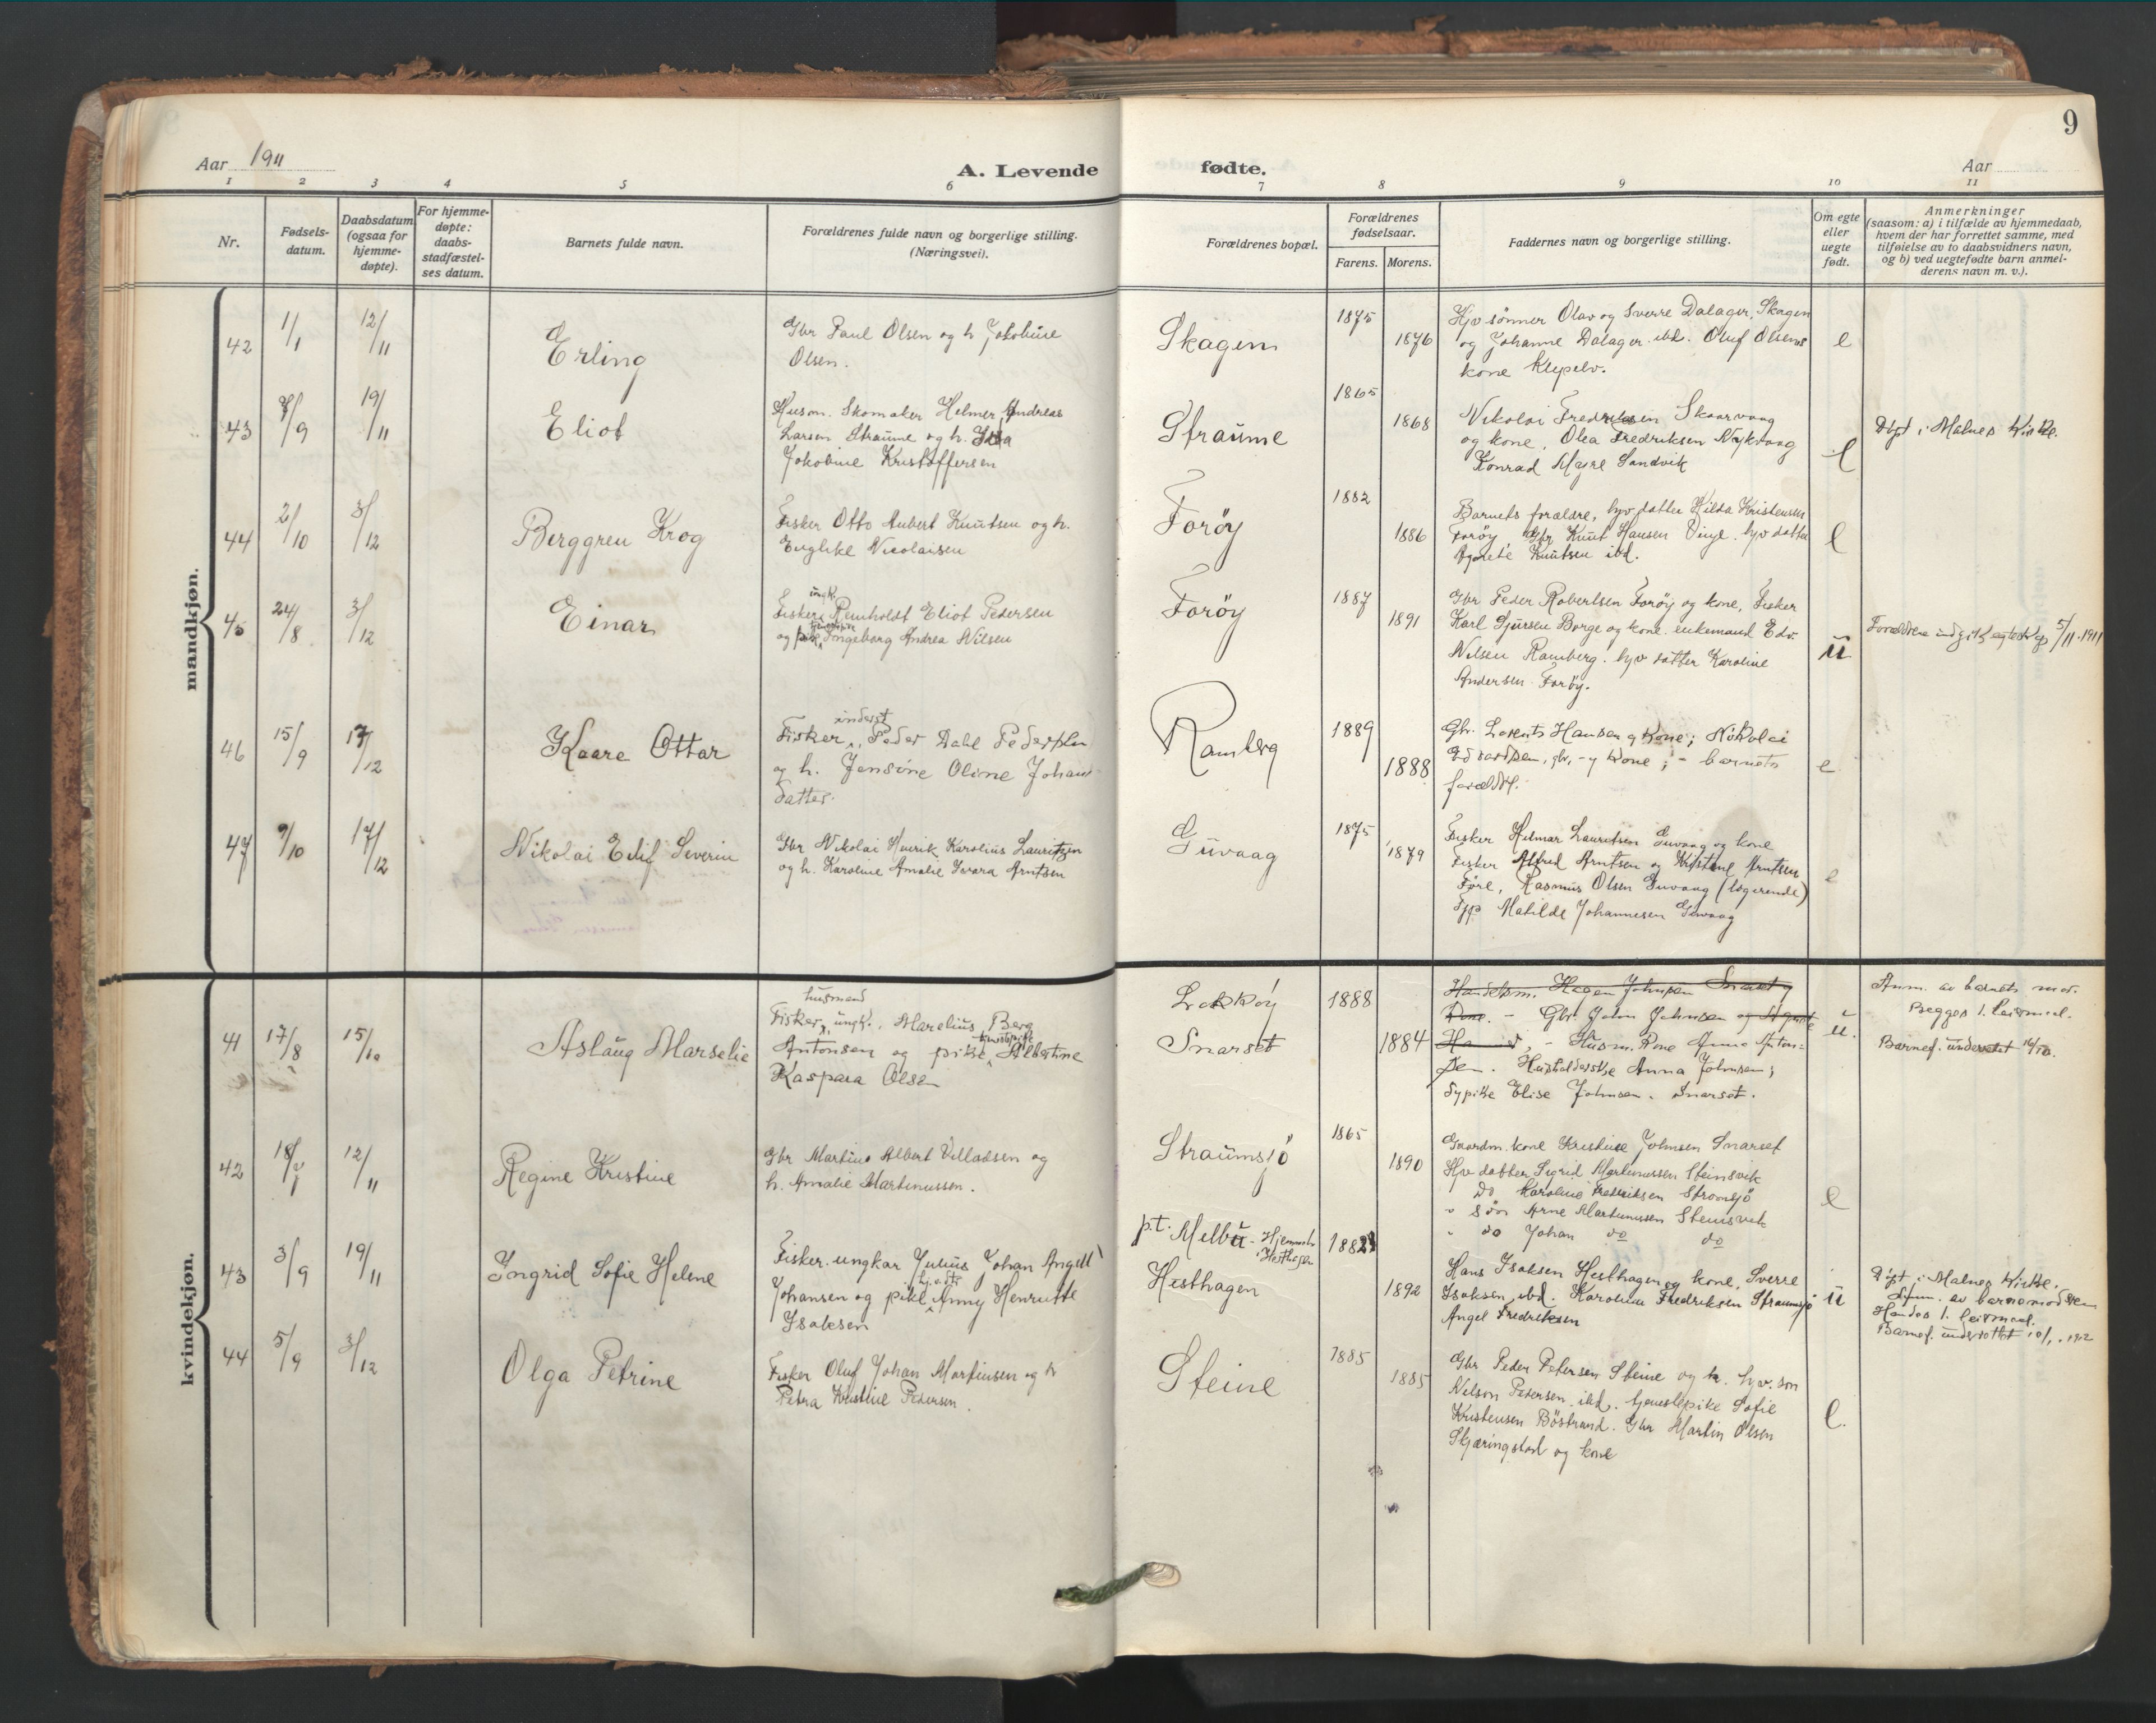 9
Aar 1911
A. Levende fødte.
Aar
1 2 3 4 5 6 7 8 9 10 11
Nr.
Fødsels-
datum.
Daabsdatum
(ogsaa for
hjemme-
døpte).
For hjemme-
døpte:
daabs-
stadfæstel-
ses datum.
Barnets fulde navn.
Forældrenes fulde navn og borgerlige stilling.
(Næringsvei).
Forældrenes bopæl.
Forældrenes
fødselsaar.
Farens. Morens.
Faddernes navn og borgerlige stilling.
Om egte
eller
uegte
født.
Anmerkninger
(saasom: a) i tilfælde av hjemmedaab,
hvem der har forrettet samme, med
tilføielse av to daabsvidners navn,
og b) ved uegtefødte barn anmel-
derens navn m. v.).
mandkjøn.
42 1/1 12/11 Erling
Gbr Paul Olsen og h. Jakobine
Olsen.
Skagen 1875 1876
Hjv sønner Olav og Sverre Dalager, Skagen
og Johanne Dalager ibd. Oluf Olsens
kone Klepelv.
e
43 7/9 19/11 Eliot
Husm. Skomaker Helmer Andreas
Larsen Straume og h.
Jakobine Kristoffersen
Straume 1865 1868
Nikolai Fredriksen Skaarvaag
og kone, Olea Fredriksen Nykvaag
Konrad Myre Sandvik
e
Døpt i Malnes Kirke.
44 2/10 3/12 Berggren Krog
Fisker Otto Aubert Knutsen og h.
Nicolaisen
Forøy 1882 1886
Barnets forældre, hjv datter Hilda Kristensen
Forøy, Gbr Knut Hansen Vinje. hjv datter
Agnete Knutsen ibd.
e
45 24/8 3/12 Einar
ungk.
Fisker Reinholdt Eliot Pedersen
og pike Ingeborg Andrea Nilsen
Forøy 1887 1891
Gbr Peder Robertsen Forøy og kone, Fisker
Karl Sjursen Borge og kone. enkemand Edv.
Nilsen Ramberg. hjv datter Karoline
Andersen Forøy.
u
Forældrene indgik egtesk. 5/11.1911
46 15/9 17/12 Kaare Ottar
inderst
Fisker, Peder Dahl Pedersen
og h. Jensine Oline Johans-
datter.
Ramberg 1889 1888
Gbr. Lorents Hansen og kone; Nikolai
Edvardsen, gbr, - og kone; - barnets
forældre.
e
47 9/10 17/12 Nikolai Edlif Severin
Gbr Nikolai Henrik Karolius Lauritzen
og h. Karoline Amalie Arntsen
Guvaag 1875 1879
Fisker Hilmar Lauritsen Guvaag og kone
Fisker Alfred Arntsen og Kristine Arntsen
Føre, Rasmus Olsen Guvaag (logerende)
Matilde Johannesen Guvaag
e
kvindekjøn.
41 17/8 15/10 Aslaug Marselie
husmand
Fisker, ungk., Marelius Berg
Antonsen og pike, Albertine
Kaspara Olsen
Lakkøy
Snarset 1888 1884
Handelsm. Hagen Johnsen Snarset og
kone. - Gbr. John Johnsen og
- Husm. kone Anna Anton-
sen. Husholderske Anna Johnsen;
Sypike Elise Johnsen. Snarset.
u.
Anm. av barnets mor.
Begges 1. leiermaal.
Barnef. underrettet 16/10.
42 18/ 12/11 Regine Kristine
Gbr Martius Albert Villadsen og
h. Amalie Martinussen.
Straumsjø 1865 1890
Gaardm. kone Kristine Johnsen Snarset
Hjv datter Sigrid Martinussen Steinsvik
do Karoline Fredriksen Stromsjø
" søn Arne Martinussen Steinsvik
" do Johan do do
e
43 3/9 19/11 Ingrid Sofie Helene
Fisker. ungkar Julius Johan Angell
Johansen og pike Anny Henriette
Isaksen
p.t. Melbu - Hjemmeh.
i Hesthagen
Hesthagen 1892
Hans Isaksen Hesthagen og kone, Sverre
Isaksen, ibd. Karoline Fredriksen Straumsjø
Angel Fredriksen
u
Døpt i Malnes Kirke.
Anm. av barnemoderen
Hendes 1. leiermaal.
Barnef. underrettet 10/1. 1912
44 5/9 3/12 Olga Petrine
Fisker Oluf Johan Martinsen og h
Petra Kristine Pedersen.
Steine 1885 1885
Gbr Peder Petersen Steine og h. hjv. søn
Nilson Petersen ibd. tjenestepike Sofie
Kristensen Bøstrand. Gbr Martin Olsen
Skjæringstad og kone
e.